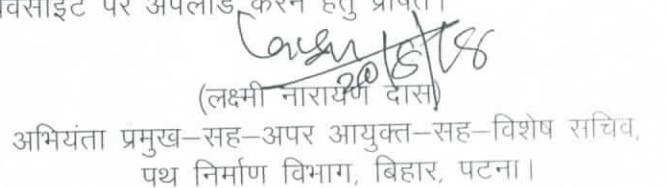 वेबसाइट पर अपलोड करने हेतु प्रेषित।
20/6/18
(लक्ष्मी नारायण दास)
अभियंता प्रमुख–सह–अपर आयुक्त–सह–विशेष सचिव,
पथ निर्माण विभाग, बिहार, पटना।